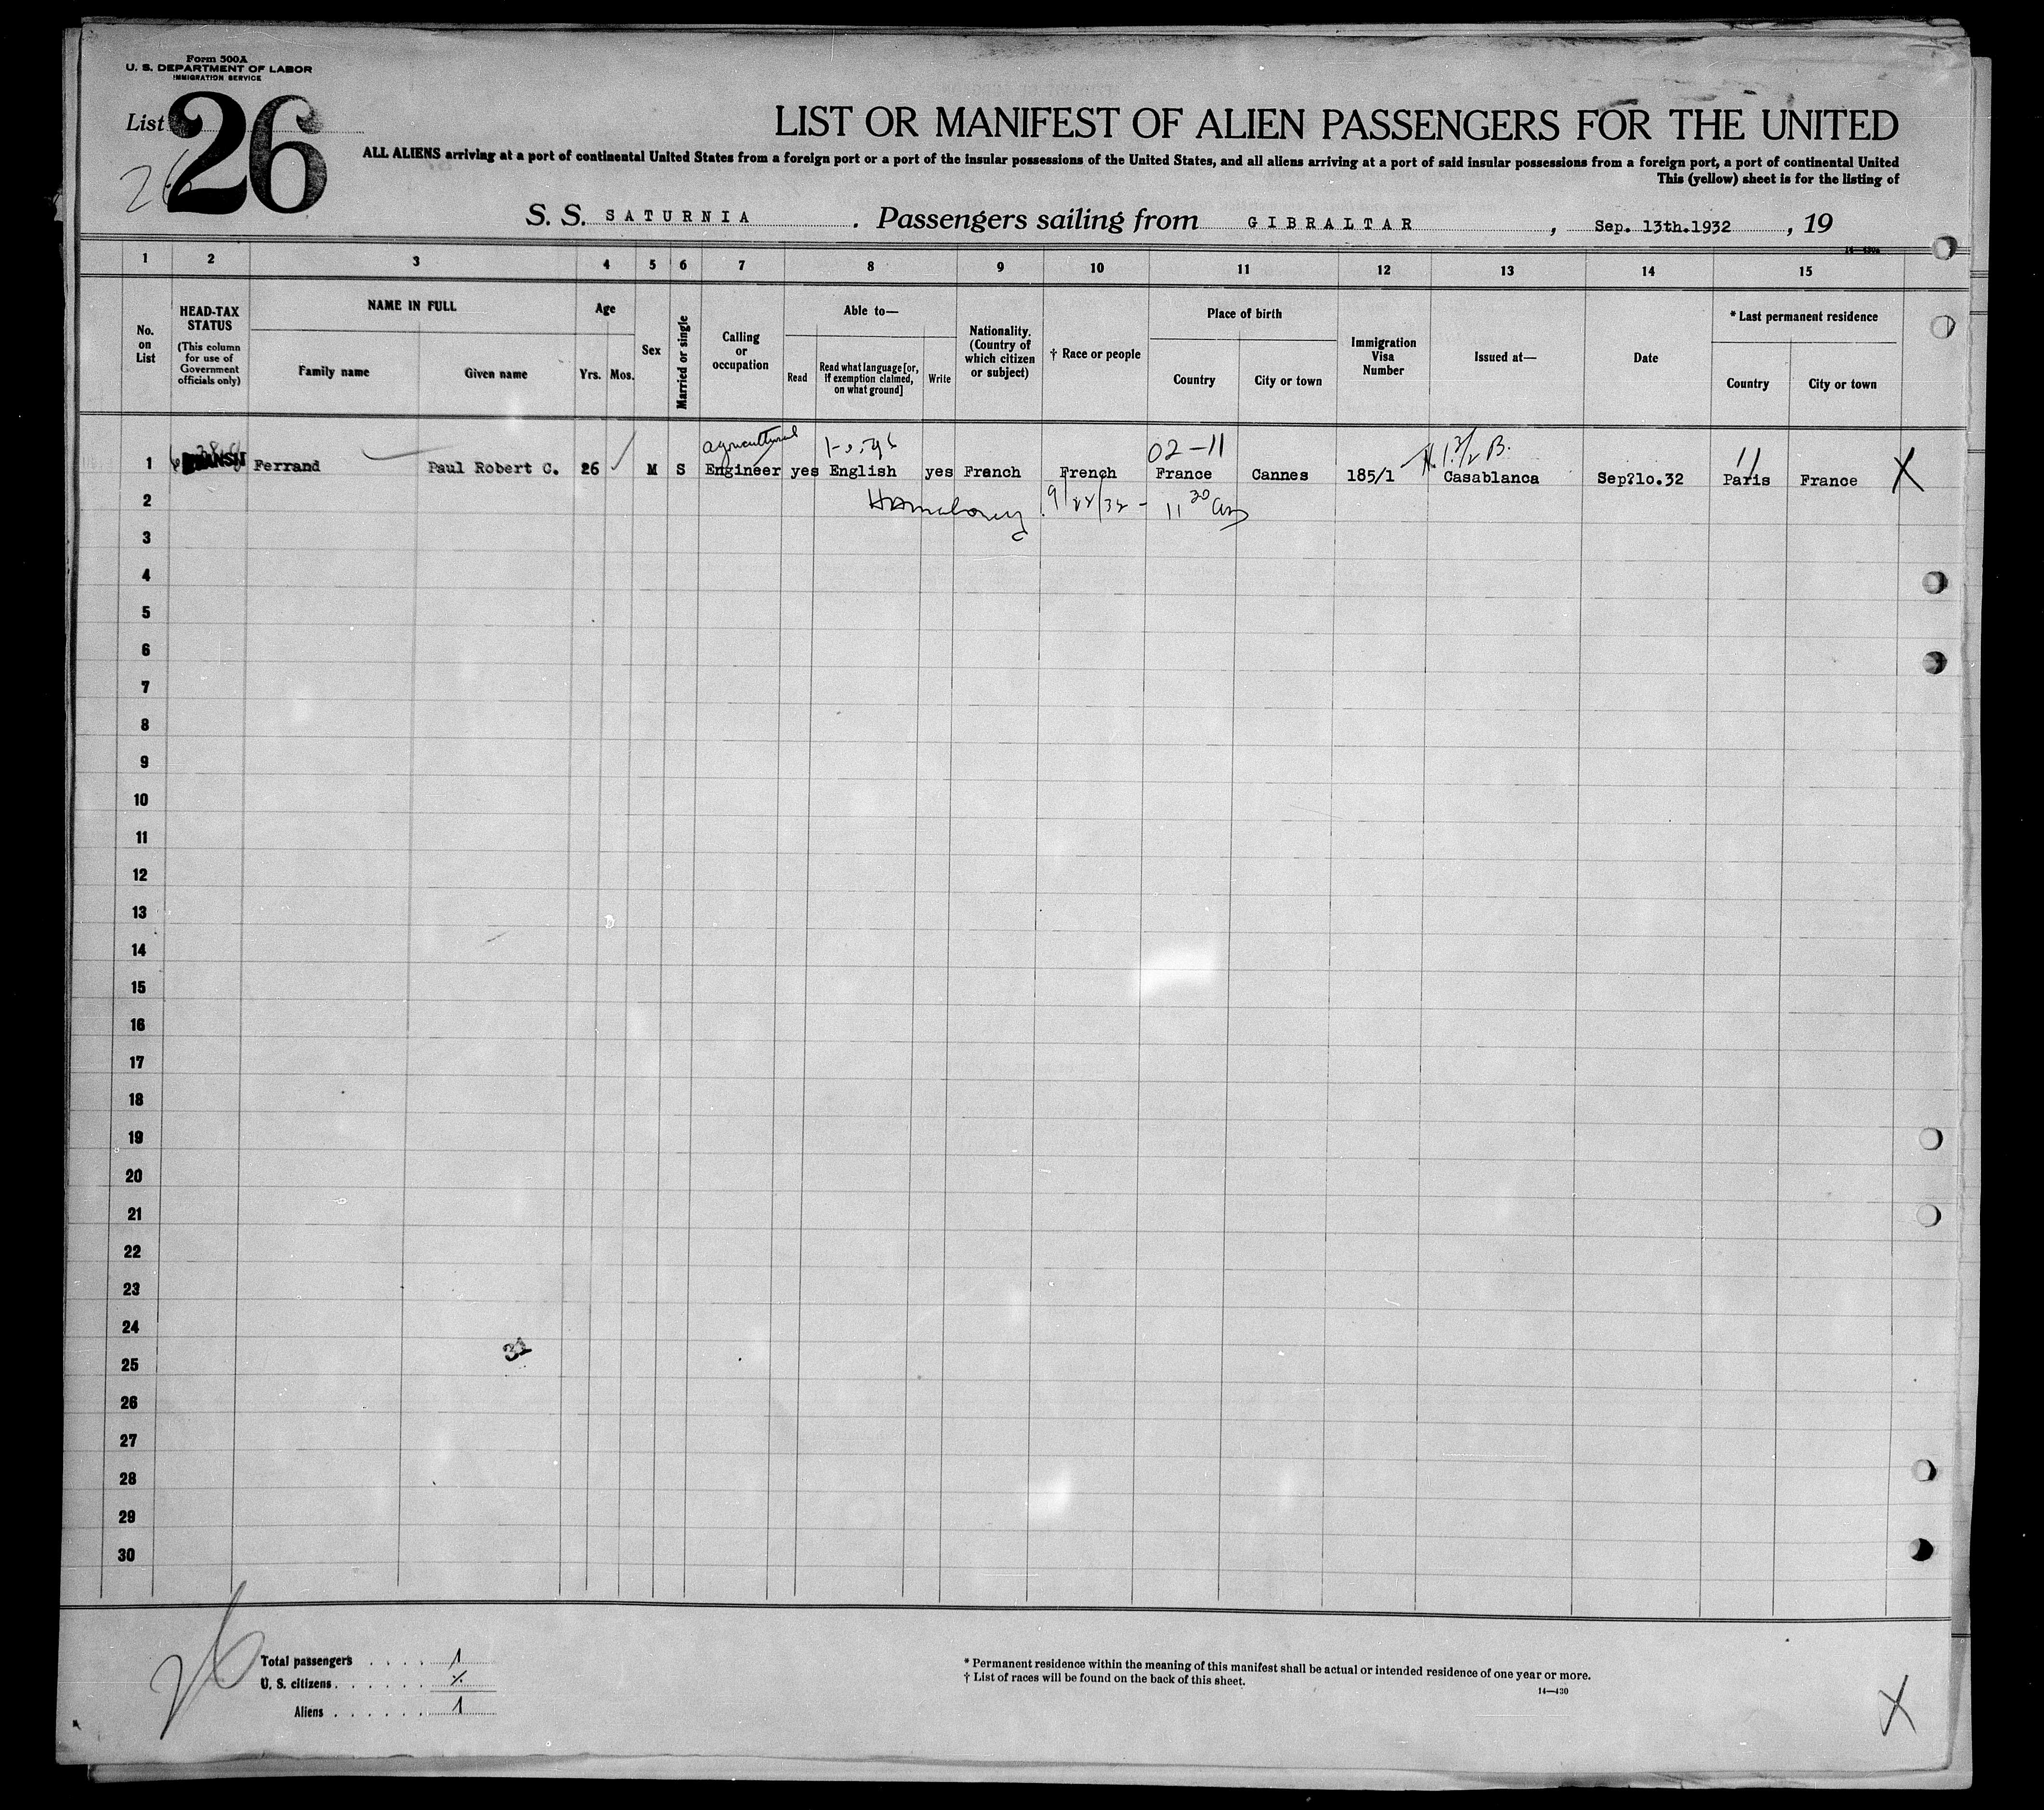 Form 500A
U. S. DEPARTMENT OF LABOR
IMMIGRATION SERVICE
List 26
26
LIST OR MANIFEST OF ALIEN PASSENGERS FOR THE UNITED
ALL ALIENS arriving at a port of continental United States from a foreign port or a port of the insular possessions of the United States, and all aliens arriving at a port of said insular possessions from a foreign port, a port of continental United
This (yellow) sheet is for the listing of
S. S. SATURNIA . Passengers sailing from GIBRALTAR , Sep. 13th.1932 , 19
14—430a
1 2 3 4 5 6 7 8 9 10 11 12 13 14 15
No. on List
HEAD-TAX STATUS (This column for use of Government officials only)
NAME IN FULL
Family name Given name
Age
Yrs. Mos.
Sex
Married or single
Calling or occupation
Able to—
Read
Read what language [or, if exemption claimed, on what ground]
Write
Nationality. (Country of which citizen or subject)
† Race or people
Place of birth
Country City or town
Immigration Visa Number
Issued at—
Date
* Last permanent residence
Country City or town
agricultural 02-11
1 Ferrand Paul Robert C. 26 M S Engineer yes English yes Franch French France Cannes 185/1 Casablanca Sep?10.32 Paris France X
2 9/22/32 - 11 30 am
3
4
5
6
7
8
9
10
11
12
13
14
15
16
17
18
19
20
21
22
23
24
25
26
27
28
29
30
26
Total passengers . . . . 1
U. S. citizens . . . . . .
Aliens . . . . . . 1
* Permanent residence within the meaning of this manifest shall be actual or intended residence of one year or more.
† List of races will be found on the back of this sheet.
14—430
X